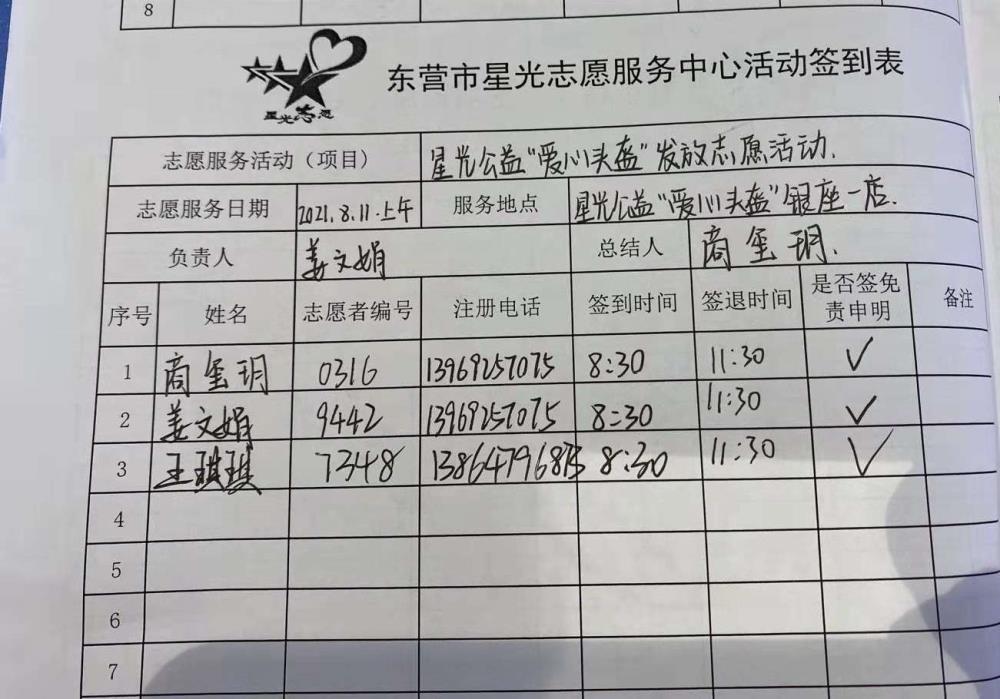 8
星光志愿
东营市星光志愿服务中心活动签到表
志愿服务活动（项目） 星光公益“爱心头盔”发放志愿活动.
志愿服务日期 2021.8.11.上午 服务地点 星光公益“爱心头盔”银座一店.
负责人 姜文娟 总结人 商玺玥.
序号 姓名 志愿者编号 注册电话 签到时间 签退时间 是否签免责申明 备注
1 商玺玥 0316 13969257075 8:30 11:30 ✓
2 姜文娟 9442 13969257075 8:30 11:30 ✓
3 王琪琪 7348 8:30 11:30 ✓
4
5
6
7